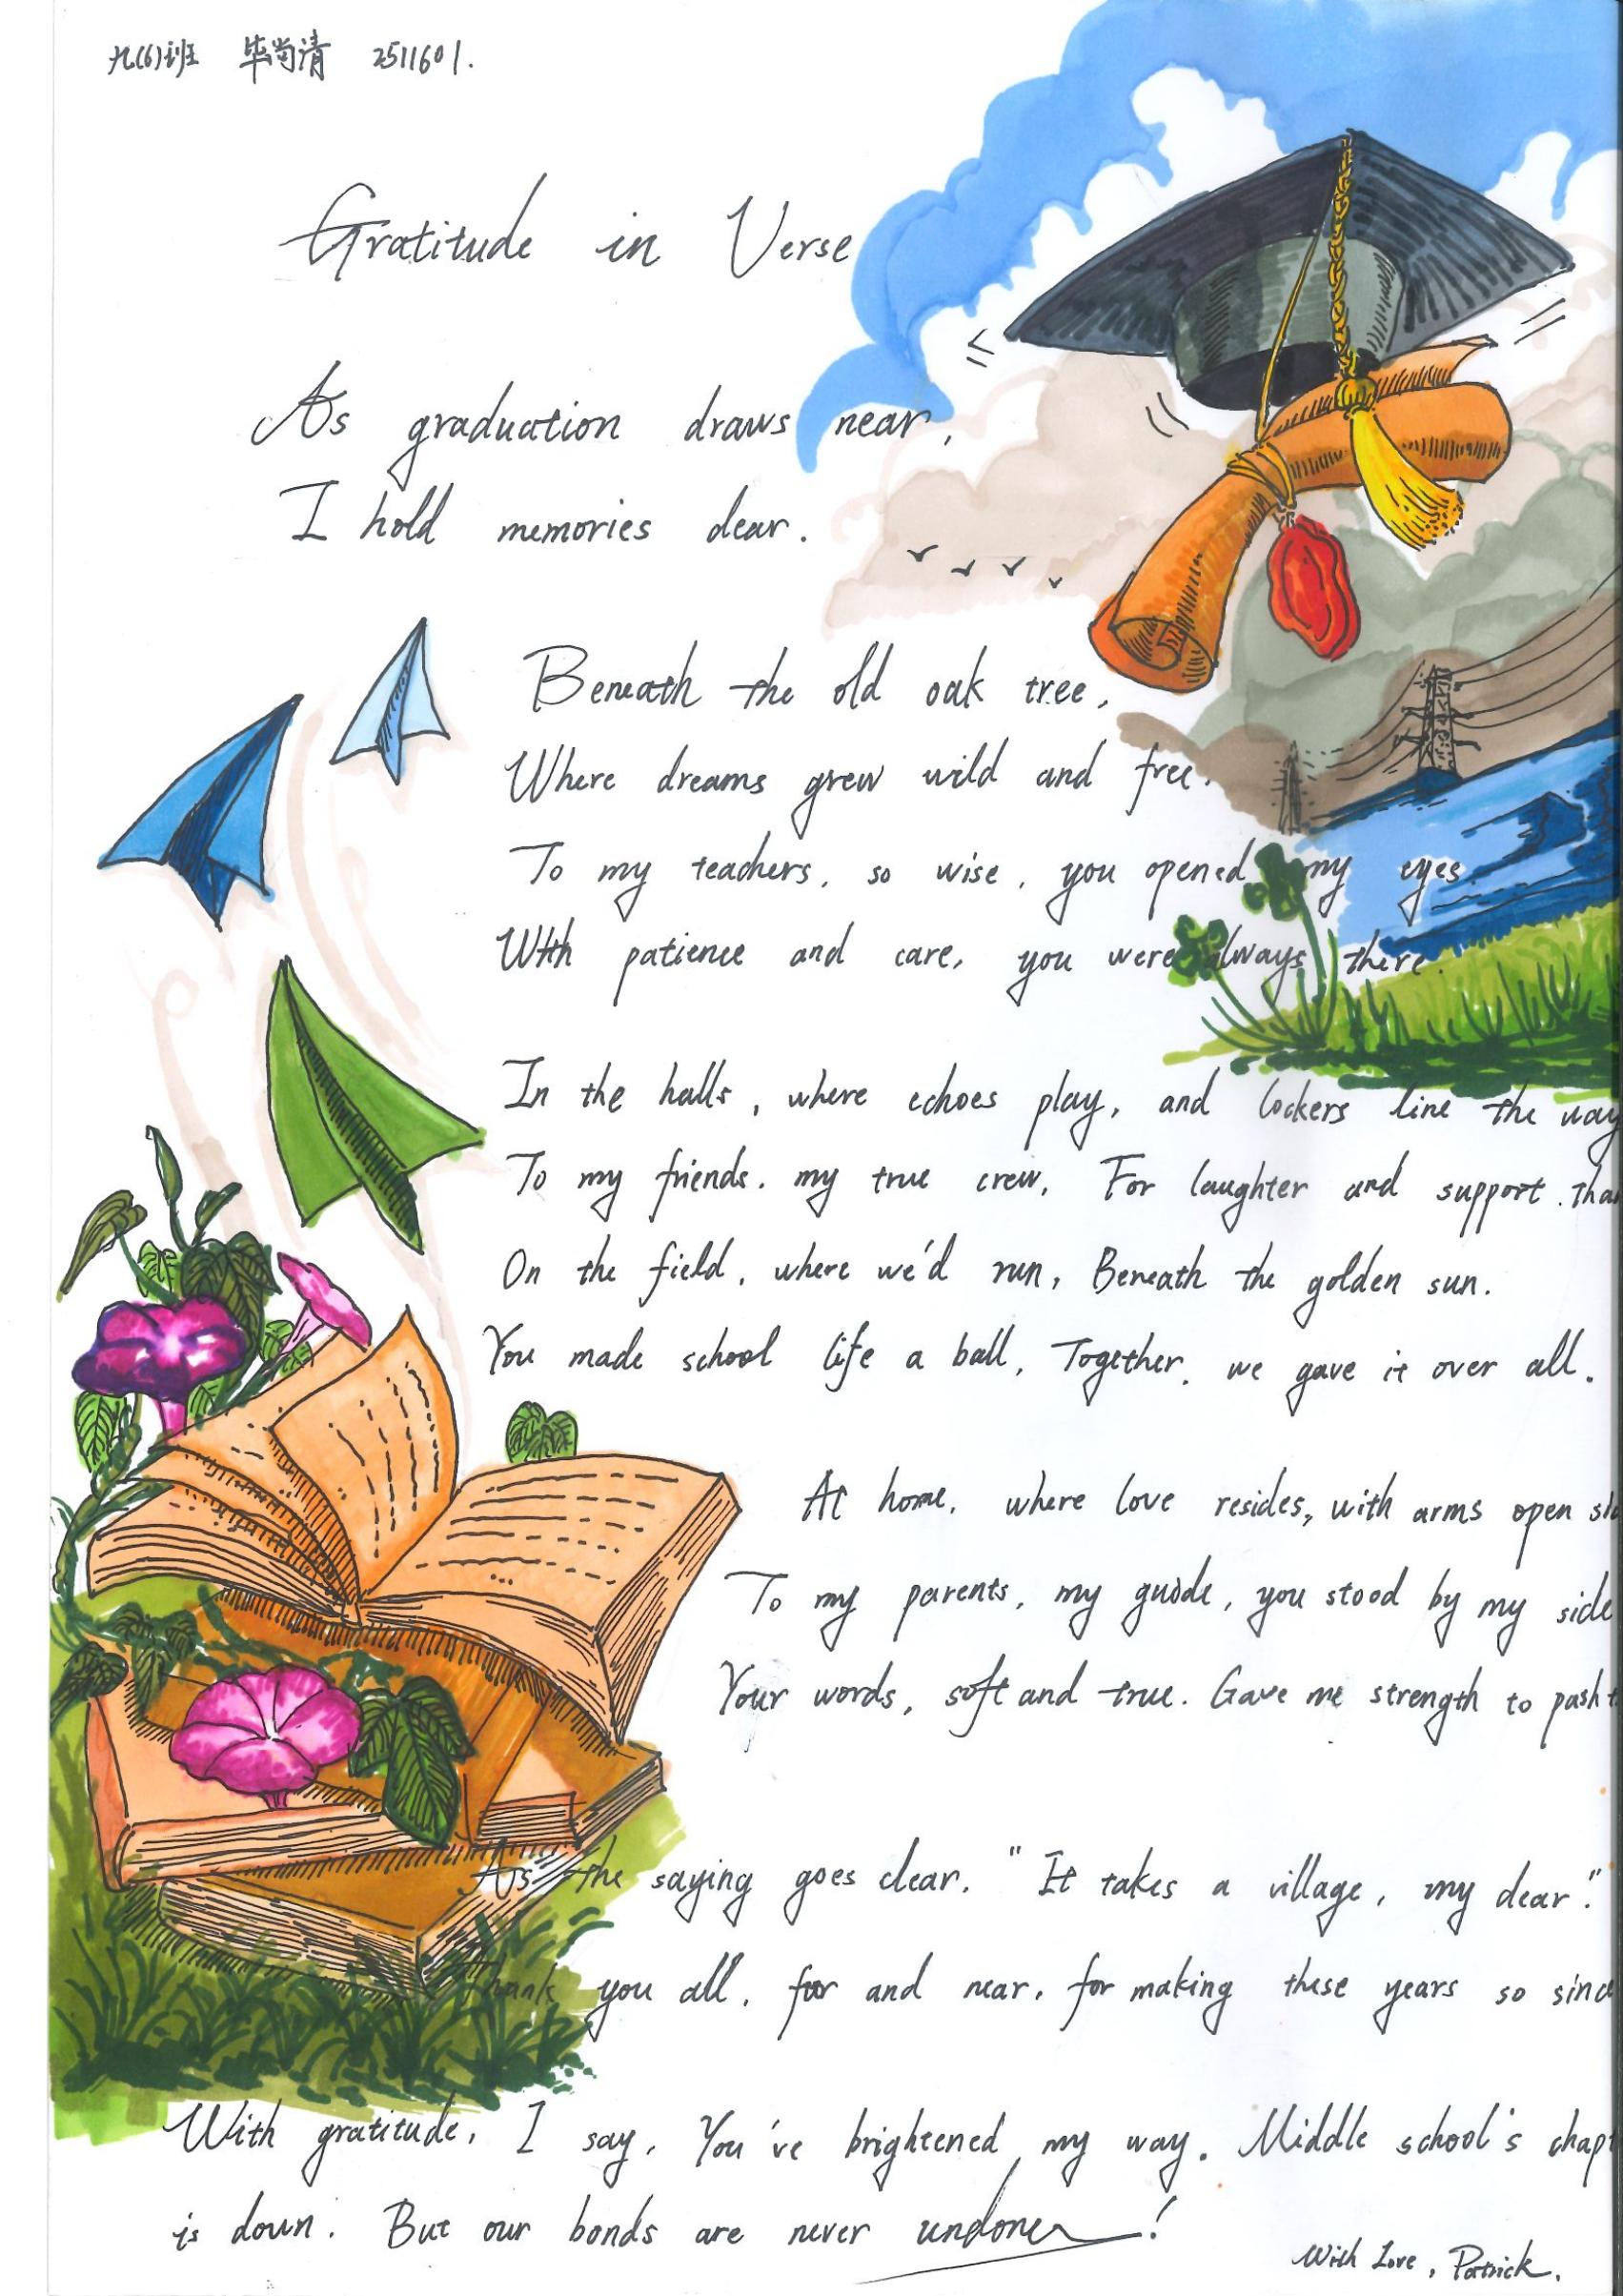 九(6)班 毕尚清 2511601.
Gratitude in Verse
As graduation draws near,
I hold memories dear.
Beneath the old oak tree,
Where dreams grew wild and free.
To my teachers, so wise, you opened my eyes
With patience and care, you were always there.
In the halls, where echoes play, and lockers line the way
To my friends. my true crew, For laughter and support.
On the field, where we'd run, Beneath the golden sun.
You made school life a ball, Together, we gave it over all.
At home, where love resides, with arms open
To my parents, my guide, you stood by my side
Your words, soft and true. Gave me strength to push
As the saying goes clear. "It takes a village, my dear."
Thank you all, far and near, for making these years so
With gratitude, I say, You've brightened my way. Middle school's
is down. But our bonds are never undone!
With Love, Patrick.